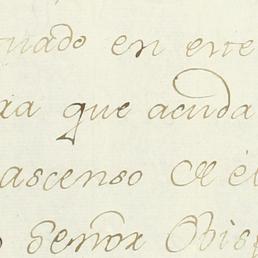 uado en este
que acuda
ascenso de el
Señor Obisp